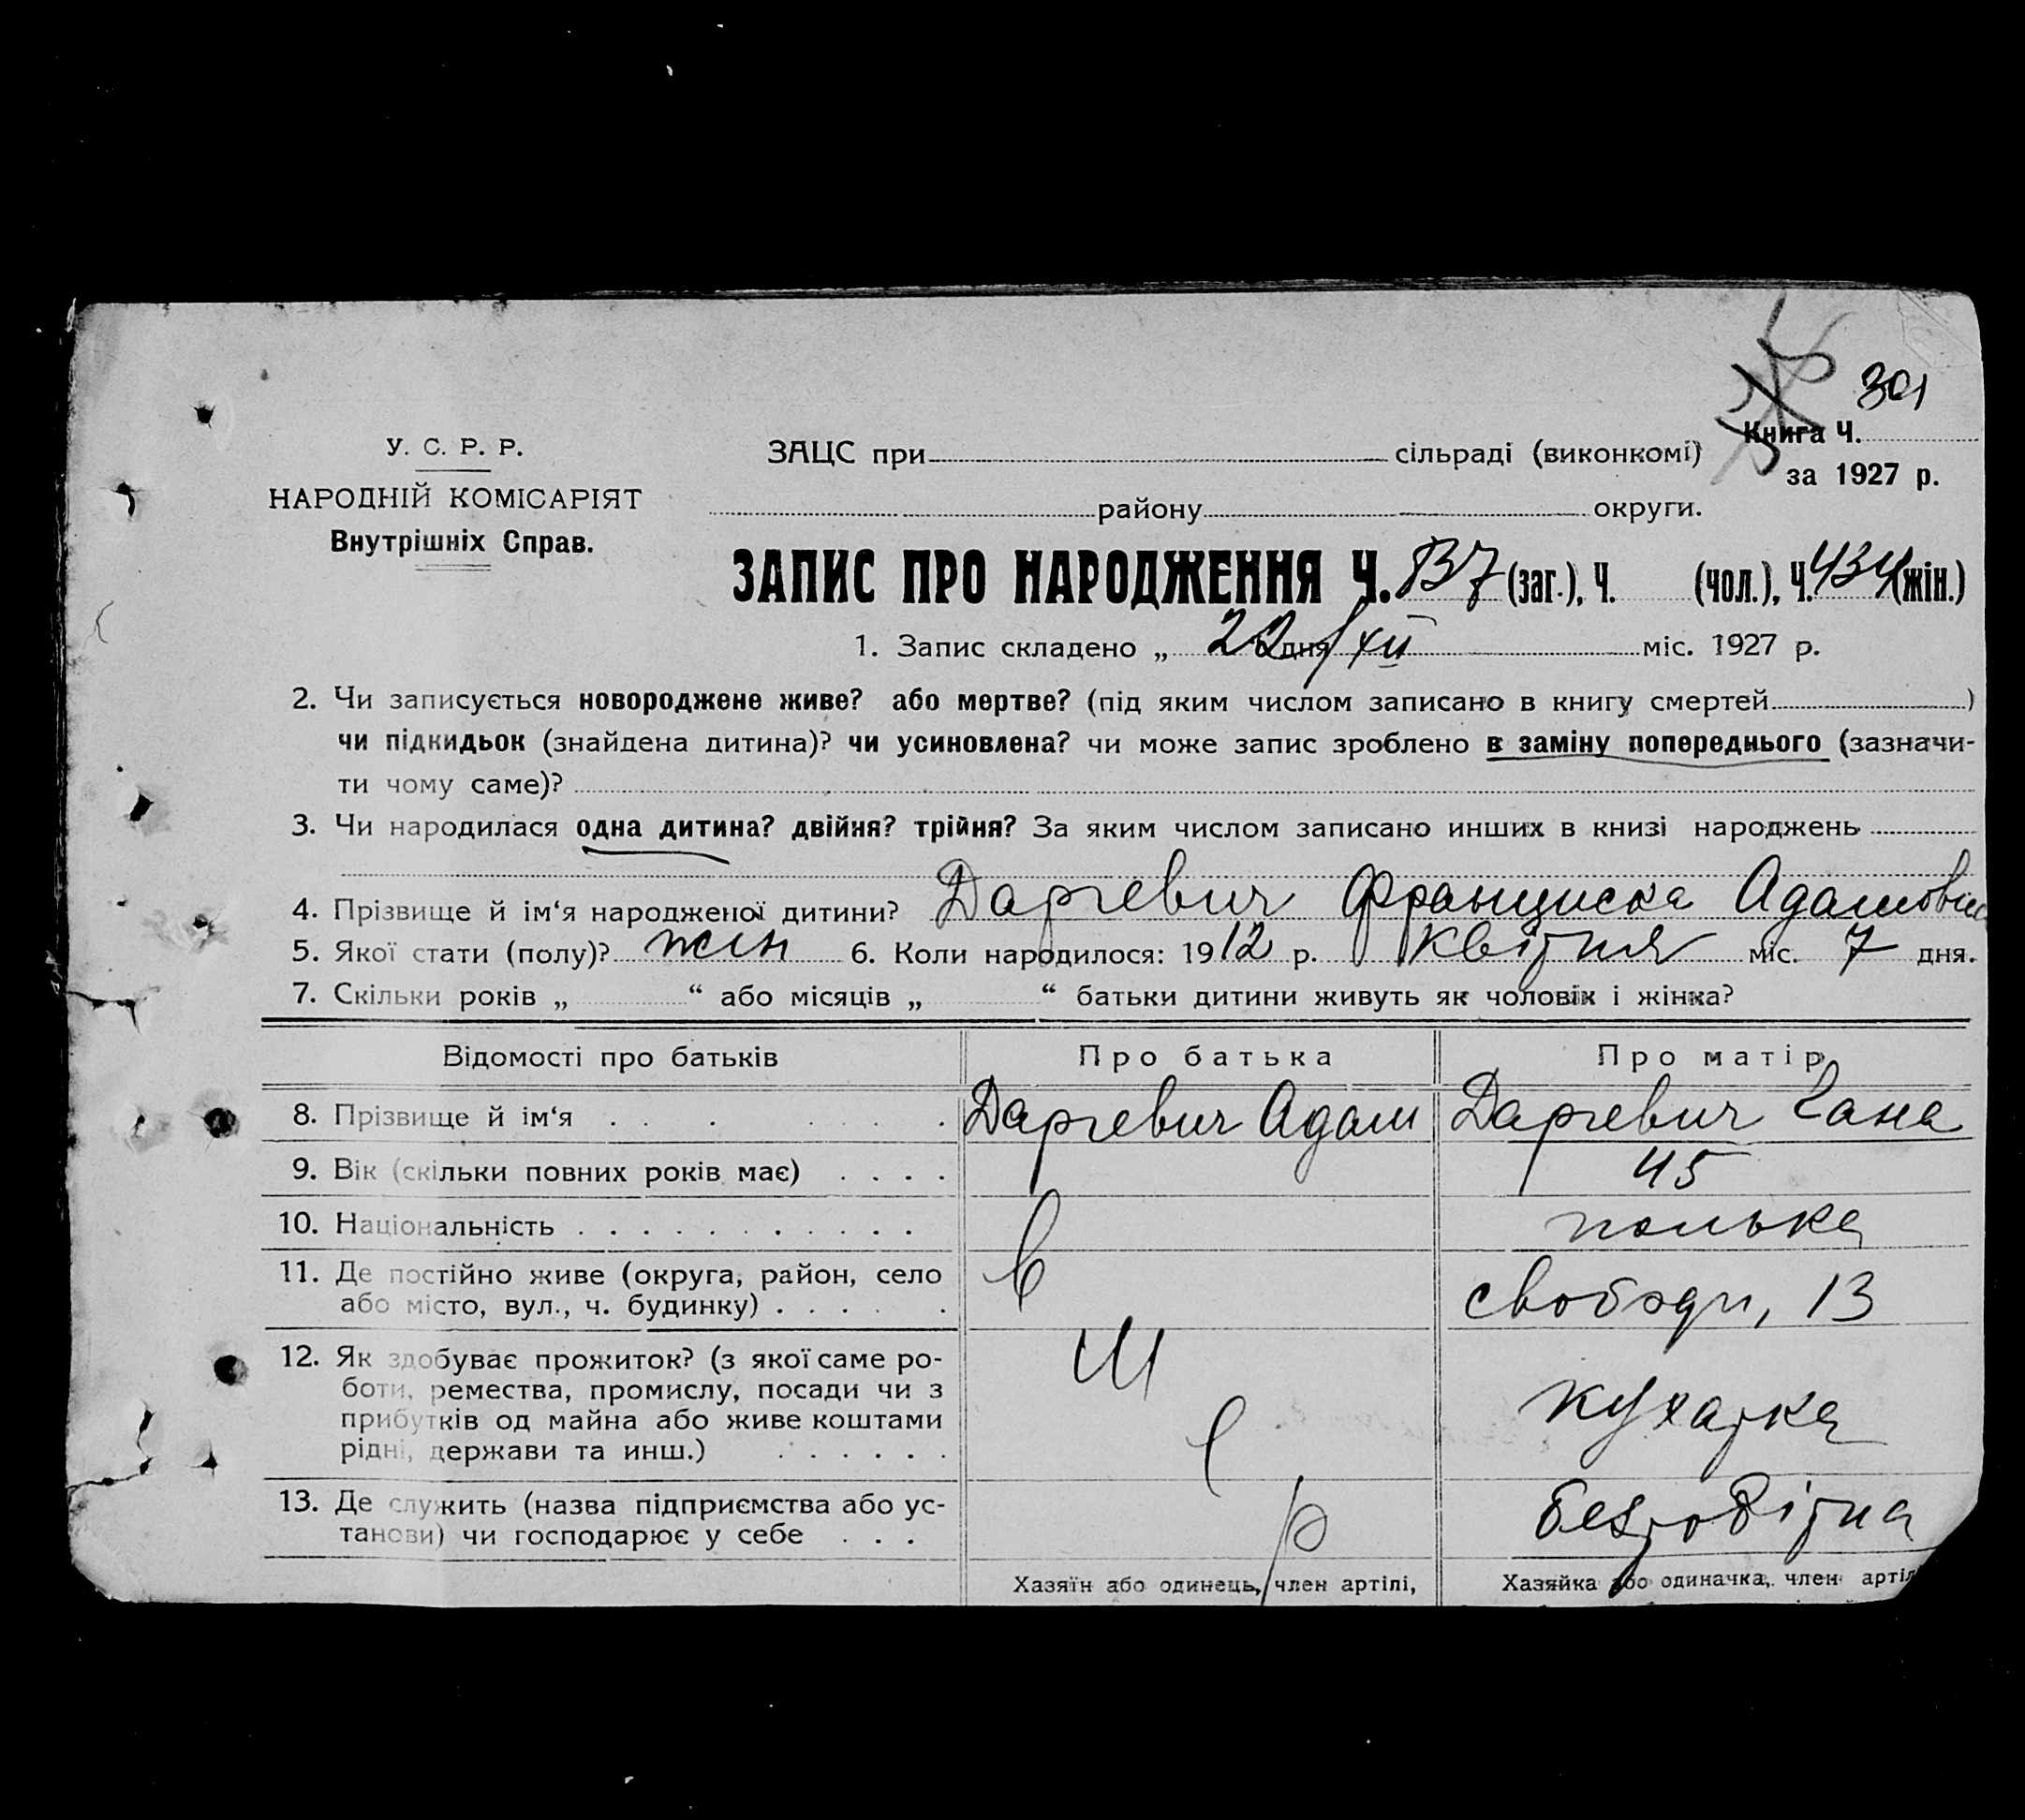 301
У. С. Р. Р.
НАРОДНІЙ КОМІСАРІЯТ
Внутрішніх Справ.
ЗАЦС при сільраді (виконкомі)
Книга Ч.
за 1927 р.
району округи.
ЗАПИС ПРО НАРОДЖЕННЯ Ч. (заг.), Ч. (чол.), Ч. 434 (жін.)
1. Запис складено „ 22 дня / XII міс. 1927 р.
2. Чи записується новороджене живе? або мертве? (під яким числом записано в книгу смертей )
чи підкидьок (знайдена дитина)? чи усиновлена? чи може запис зроблено в заміну попереднього (зазначи-
ти чому саме)?
3. Чи народилася одна дитина? двійня? трійня? За яким числом записано инших в книзі народжень
4. Прізвище й ім‘я народженої дитини? Даргевич Франциска Адамовн
5. Якої стати (полу)? жін 6. Коли народилося: 1912 р. квітня міс. 7 дня.
7. Скільки років „ “ або місяців „ “ батьки дитини живуть як чоловік і жінка?
Відомості про батьків Про батька Про матір
8. Прізвище й ім‘я Даргевич Адам Даргевич
9. Вік (скільки повних років має) 45
10. Національність полька
11. Де постійно живе (округа, район, село
або місто, вул., ч. будинку) свободи, 13
12. Як здобуває прожиток? (з якої саме ро-
боти, ремества, промислу, посади чи з
прибутків од майна або живе коштами
рідні, держави та инш.) кухарка
13. Де служить (назва підприємства або ус-
танови) чи господарює у себе безробітна
вмер
Хазяїн або одинець, член артілі, Хазяйка або одиначка, член артіл